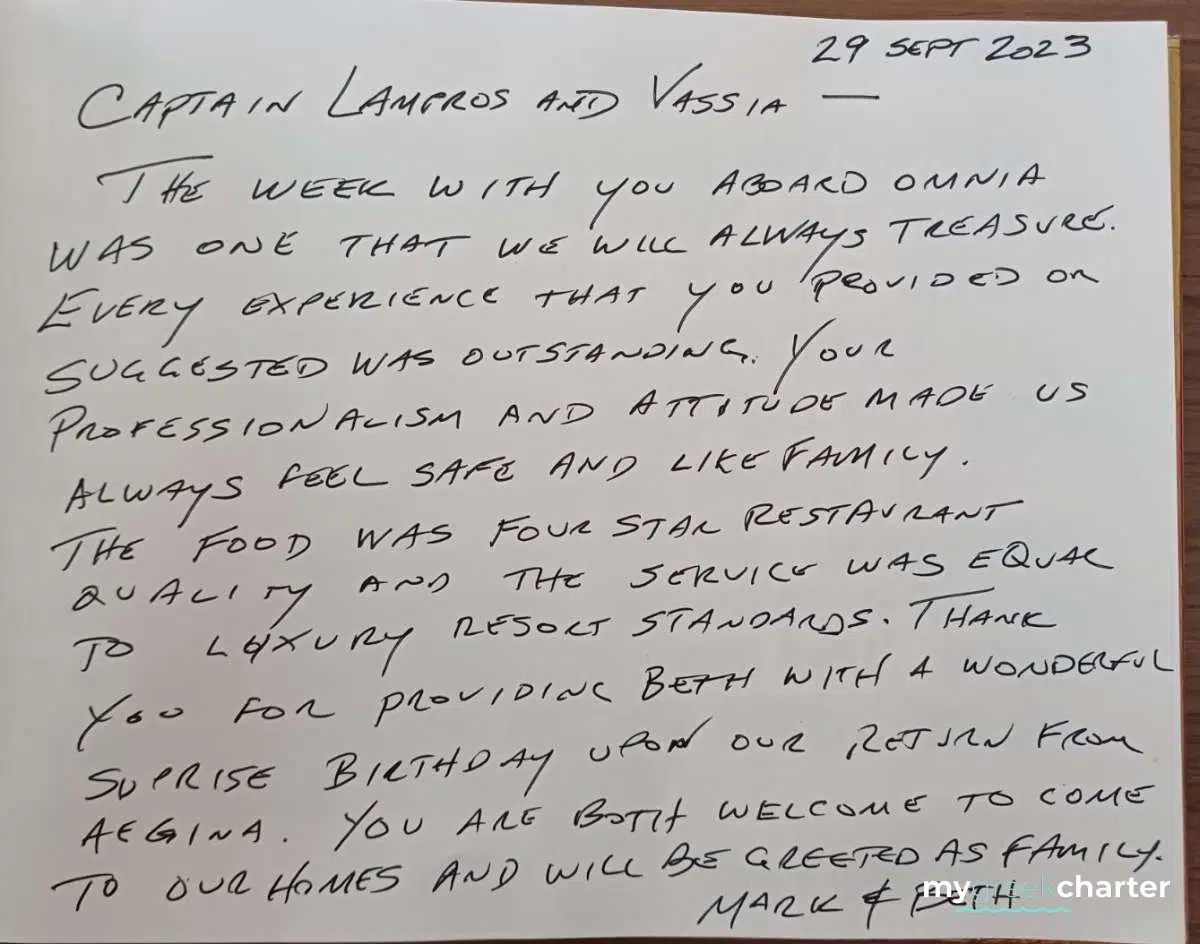 29 SEPT 2023
CAPTAIN LAMPROS AND VASSIA —
THE WEEK WITH YOU ABOARD OMNIA
WAS ONE THAT WE WILL ALWAYS TREASURE.
EVERY EXPERIENCE THAT YOU PROVIDED OR
SUGGESTED WAS OUTSTANDING. YOUR
PROFESSIONALISM AND ATTITUDE MADE US
ALWAYS FEEL SAFE AND LIKE FAMILY.
THE FOOD WAS FOUR STAR RESTAURANT
QUALITY AND THE SERVICE WAS EQUAL
TO LUXURY RESORT STANDARDS. THANK
YOU FOR PROVIDING BETH WITH A WONDERFUL
SUPRISE BIRTHDAY UPON OUR RETURN FROM
AEGINA. YOU ARE BOTH WELCOME TO COME
TO OUR HOMES AND WILL BE GREETED AS FAMILY.
MARK & BETH
mygreekcharter